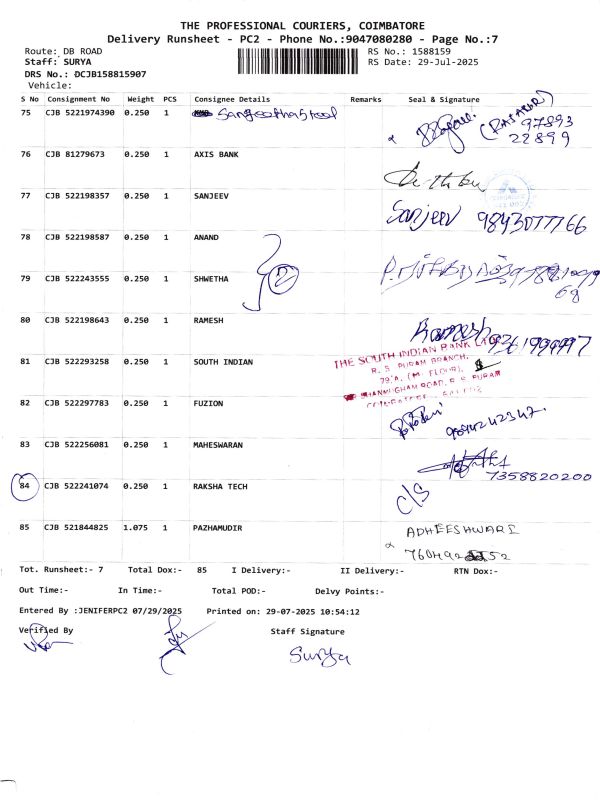 THE PROFESSIONAL COURIERS, COIMBATORE
Delivery Runsheet - PC2 - Phone No.:9047080280 - Page No.:7
Route: DB ROAD RS No.: 1588159
Staff: SURYA RS Date: 29-Jul-2025
DRS No.: DCJB158815907
Vehicle:
S No Consignment No Weight PCS Consignee Details Remarks Seal & Signature
75 CJB 5221974390 0.250 1 Sangeetha Steel (RAJARAM) 97893
22899
76 CJB 81279673 0.250 1 AXIS BANK
77 CJB 522198357 0.250 1 SANJEEV Sanjeev 9843077766
78 CJB 522198587 0.250 1 ANAND
2
79 CJB 522243555 0.250 1 SHWETHA
68
80 CJB 522198643 0.250 1 RAMESH Ramesh 9361999997
81 CJB 522293258 0.250 1 SOUTH INDIAN THE SOUTH INDIAN BANK LTD
R. S. PURAM BRANCH,
79/A, (Ist FLOOR),
SHANMUGHAM ROAD, R S PURAM
82 CJB 522297783 0.250 1 FUZION 9894242347.
83 CJB 522256081 0.250 1 MAHESWARAN
7358820200
84 CJB 522241074 0.250 1 RAKSHA TECH C/S
85 CJB 521844825 1.075 1 PAZHAMUDIR ADHEESHWARI
Tot. Runsheet:- 7 Total Dox:- 85 I Delivery:- II Delivery:- RTN Dox:-
Out Time:- In Time:- Total POD:- Delvy Points:-
Entered By :JENIFERPC2 07/29/2025 Printed on: 29-07-2025 10:54:12
Verified By Staff Signature
Surya